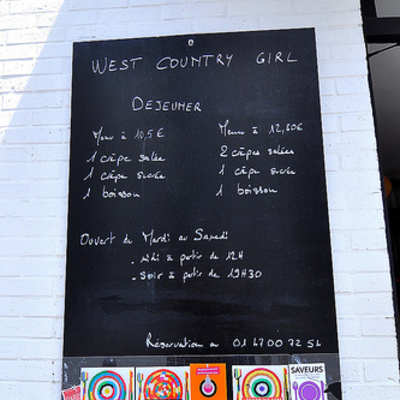 WEST COUNTRY GIRL
DEJEUNER
Menu à 10,5€
1 crêpe salée
1 crêpe sucrée
1 boisson
Menu à 12,60€
2 crêpes salées
1 crêpe sucrée
1 boisson
Ouvert du Mardi au Samedi
- Midi à partir de 12H
- Soir à partir de 19H30
Réservation au 01 47 00 72 54
SAVEURS